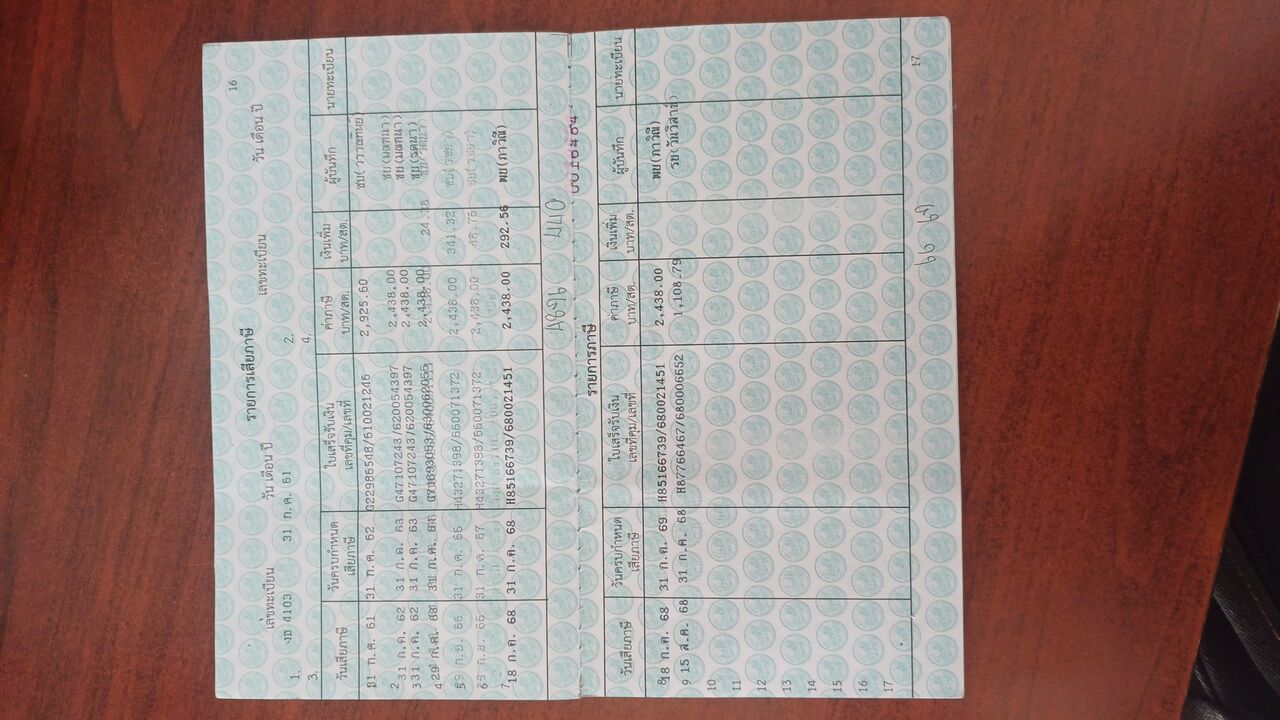 16
รายการเสียภาษี
เลขทะเบียน วัน เดือน ปี เลขทะเบียน วัน เดือน ปี
1. งธ 4103 31 ก.ค. 61 2.
3. 4.
วันเสียภาษี วันครบกำหนด ใบเสร็จรับเงิน ค่าภาษี เงินเพิ่ม ผู้บันทึก นายทะเบียน
เสียภาษี เลขที่คุม/เลขที่ บาท/สต. บาท/สต.
31 ก.ค. 61 31 ก.ค. 62 G22986548/610021246 2,925.60
2 31 ก.ค. 62 31 ก.ค. 63 G47107243/620054397 2,438.00 ชบ(มณฑนา)
3 31 ก.ค. 62 31 ก.ค. 63 G47107243/620054397 2,438.00 ชบ(มณฑนา)
4 2,438.00 24.38 ชบ(รตนา)
5 31 ก.ค. 66 H43271398/660071372 2,438.00 341.32
6 31 ก.ค. 67 H43271398/660071372 2,438.00 48.76
7 18 ก.ค. 68 31 ก.ค. 68 H85166739/680021451 2,438.00 292.56 พย(ภาวิณี)
0016464
รายการภาษี
วันเสียภาษี วันครบกำหนด ใบเสร็จรับเงิน ค่าภาษี เงินเพิ่ม ผู้บันทึก นายทะเบียน
เสียภาษี เลขที่คุม/เลขที่ บาท/สต. บาท/สต.
8 18 ก.ค. 68 31 ก.ค. 69 H85166739/680021451 2,438.00 พย(ภาวิณี)
9 15 ส.ค. 68 31 ก.ค. 68 H87766467/680006652 1,108.79 รย(วันวิสาข์)
10
11
12
13
14
15
16
17
17